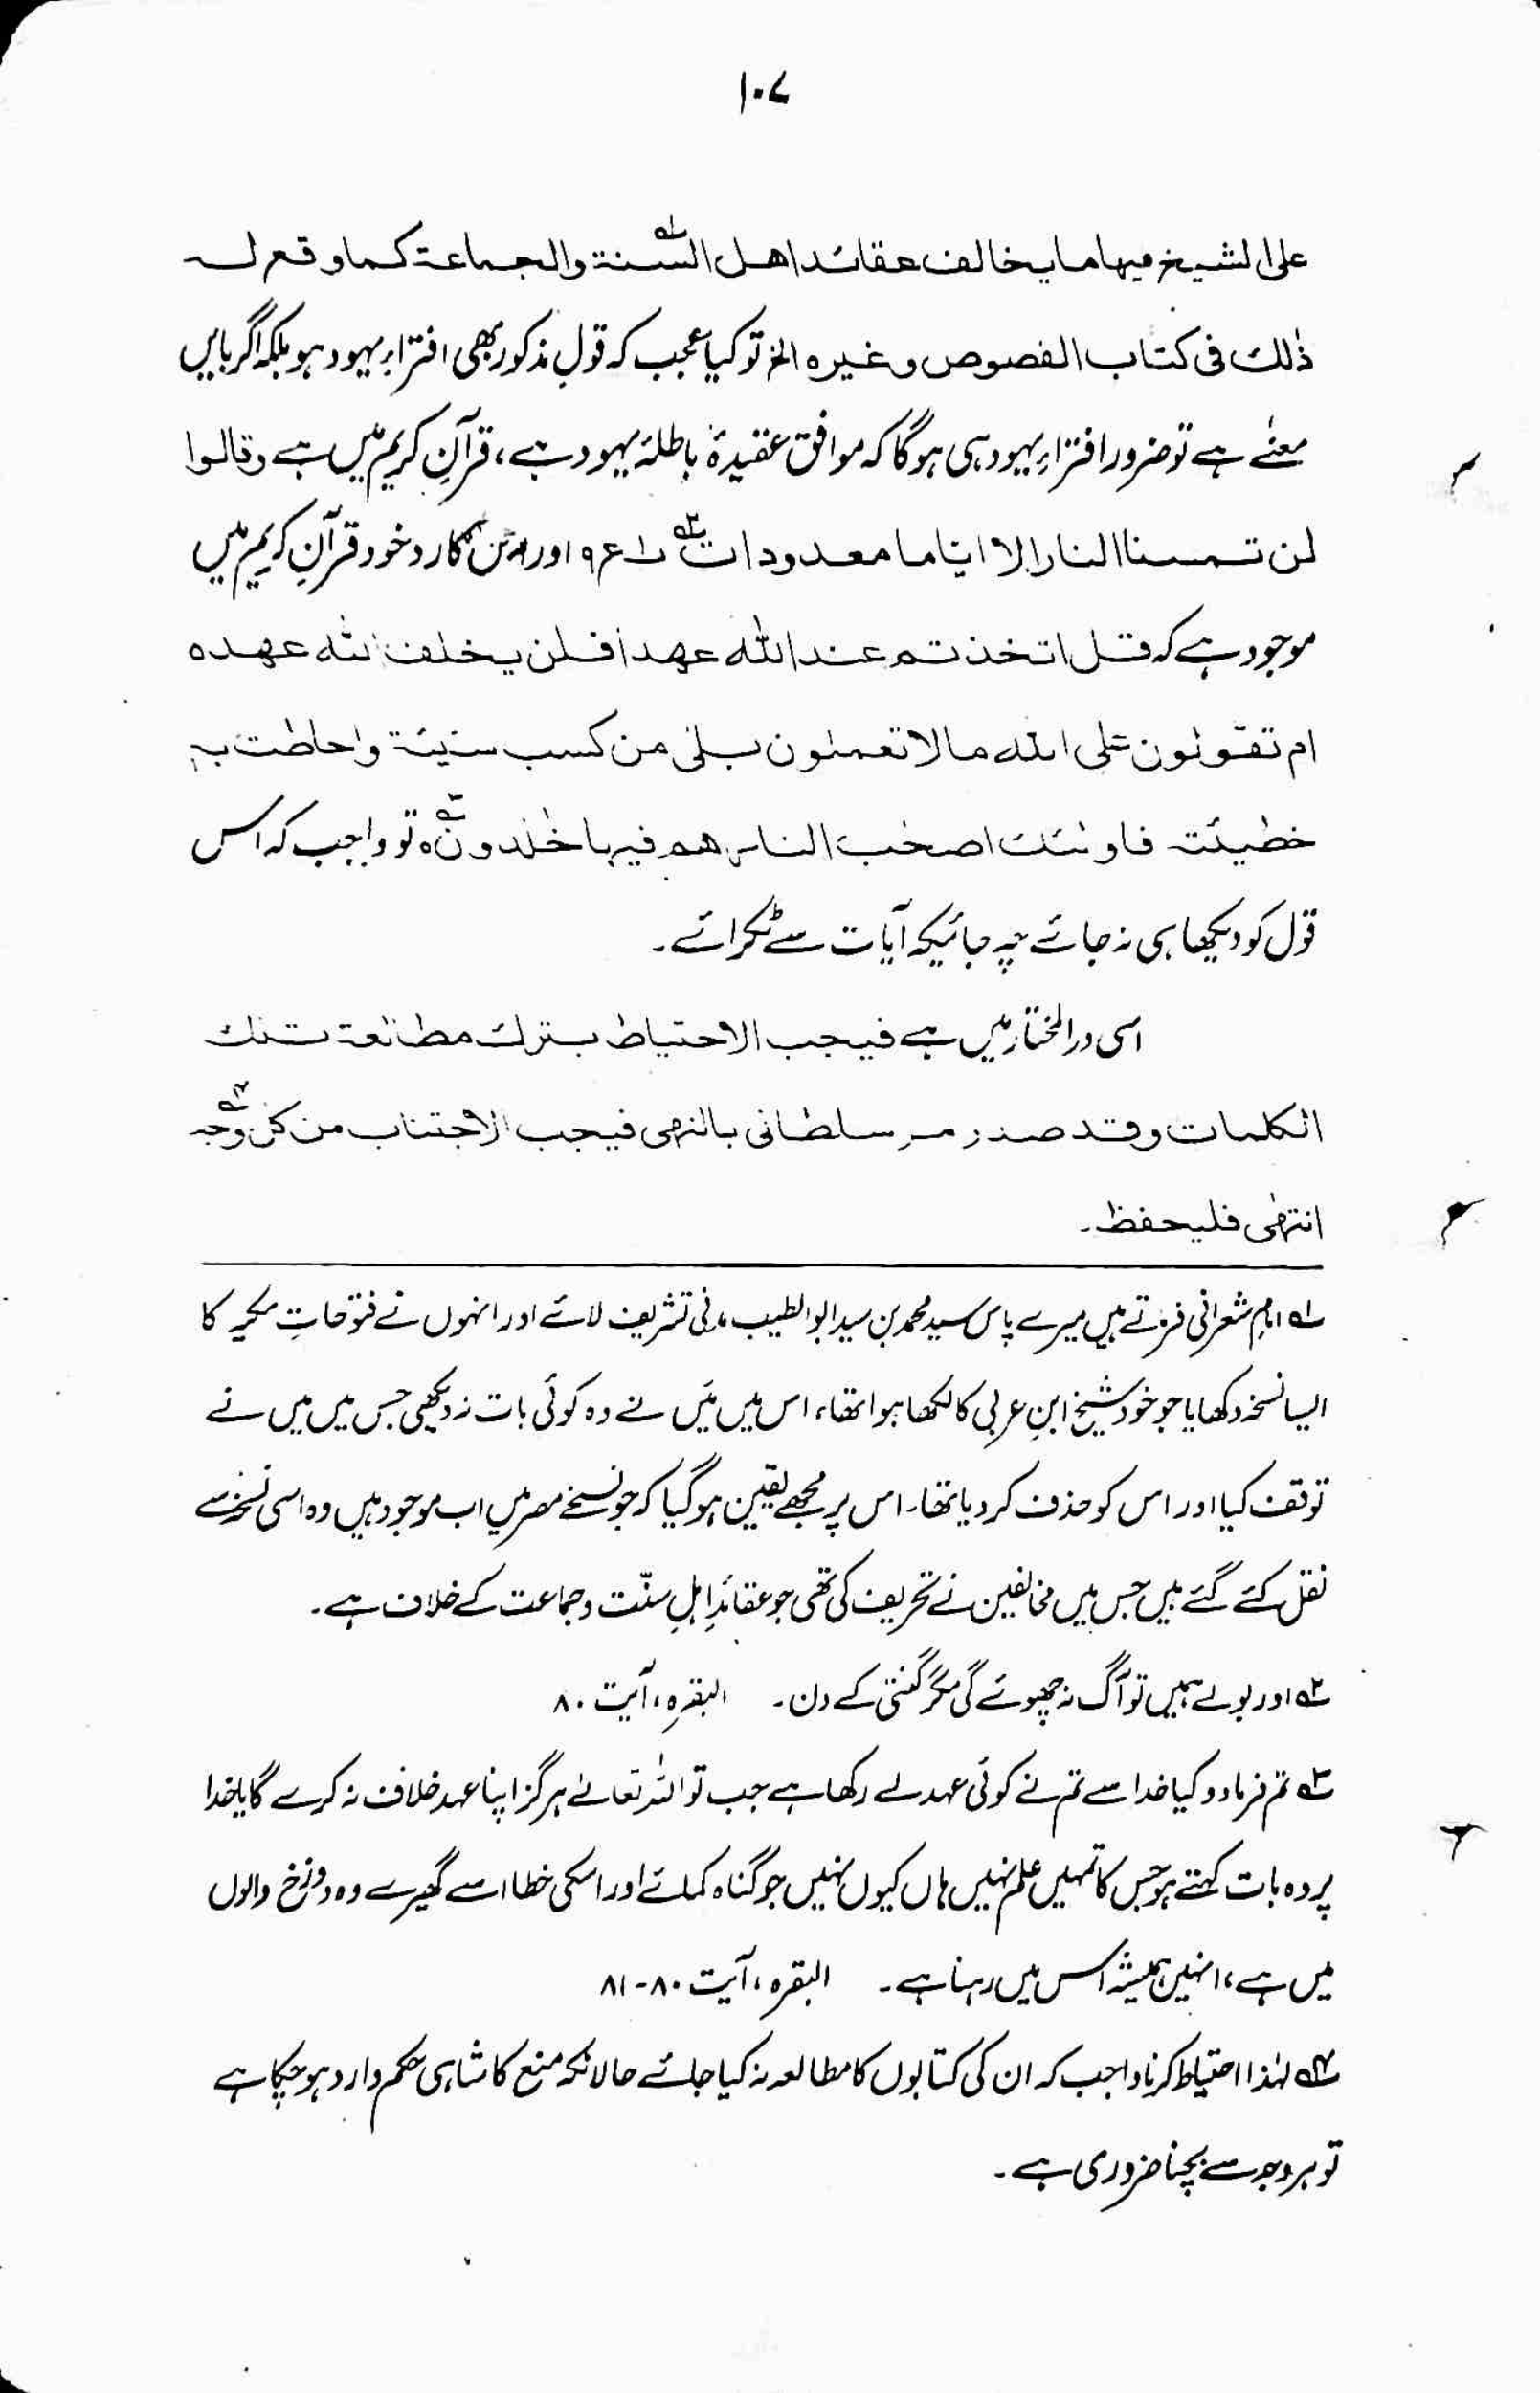 ۱۰۷
علی الشیخ فیها ما یخالف عقائد اهل السنة والجماعة کما وقع له
ذٰلک فی کتاب الفصوص وغیره الخ تو کیا عجب کہ قولِ مذکور بھی افتراءِ یہود ہو بلکہ اگر بایں
معنٰے ہے تو ضرور افتراءِ یہود ہی ہوگا کہ موافق عقیدۂ باطلۂ یہود ہے، قرآنِ کریم میں ہے وقالوا
لن تمسنا النار الا ایاما معدودات ۲؎ اور اس کا رد خود قرآنِ کریم میں
موجود ہے کہ قل اتخذتم عند الله عهدا فلن یخلف الله عهده
ام تقولون علی الله مالا تعلمون بلٰی من کسب سیئة واحاطت به
خطیئته فاولٰئک اصحٰب النار هم فیها خٰلدون ۳؎ ہ تو واجب کہ اس
قول کو دیکھا ہی نہ جائے چہ جائیکہ آیات سے ٹکرائے۔
اسی درالمختار میں ہے فیجب الاحتیاط بترک مطالعة تلک
الکلمات وقد صدر امر سلطانی بالنهی فیجب الاجتناب من کل وجه ۴؎
انتهٰی فلیحفظ۔
۱؎ امام شعرانی فرماتے ہیں میرے پاس سید محمد بن سید ابوالطیب مدنی تشریف لائے اور انہوں نے فتوحاتِ مکیہ کا
ایسا نسخہ دکھایا جو خود شیخ ابنِ عربی کا لکھا ہوا تھا، اس میں مَیں نے وہ کوئی بات نہ دیکھی جس میں میں نے
توقف کیا اور اس کو حذف کر دیا تھا۔ اس پر مجھے یقین ہوگیا کہ جو نسخے مصر میں اب موجود ہیں وہ اسی نسخہ سے
نقل کئے گئے ہیں جس میں مخالفین نے تحریف کی تھی جو عقائدِ اہلِ سنّت و جماعت کے خلاف ہے۔
۲؎ اور بولے ہمیں تو آگ نہ چھوئے گی مگر گنتی کے دن۔ البقرہ، آیت ۸۰
۳؎ تم فرمادو کیا خدا سے تم نے کوئی عہد لے رکھا ہے جب تو اللہ تعالٰے ہرگز اپنا عہد خلاف نہ کرے گا یا خدا
پر وہ بات کہتے ہو جس کا تمہیں علم نہیں ہاں کیوں نہیں جو گناہ کمائے اور اسکی خطا اسے گھیرے وہ دوزخ والوں
میں ہے، انہیں ہمیشہ اس میں رہنا ہے۔ البقرہ، آیت ۸۰-۸۱
۴؎ لہٰذا احتیاط کرنا واجب کہ ان کی کتابوں کا مطالعہ نہ کیا جائے حالانکہ منع کا شاہی حکم وارد ہوچکا ہے
تو ہر وجہ سے بچنا ضروری ہے۔